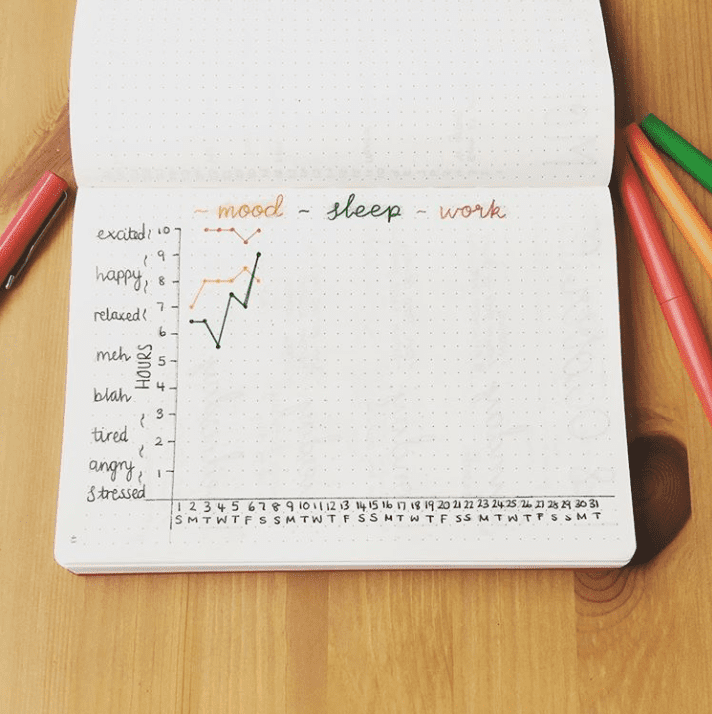 ~ mood ~ sleep ~ work
excited 10
9
happy 8
relaxed 7
6
meh 5
HOURS
blah 4
3
tired 2
angry 1
stressed
1 2 3 4 5 6 7 8 9 10 11 12 13 14 15 16 17 18 19 20 21 22 23 24 25 26 27 28 29 30 31
S M T W T F S S M T W T F S S M T W T F S S M T W T F S S M T